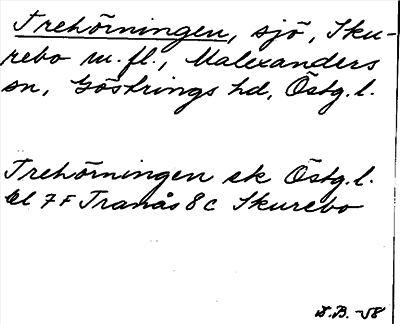 Trehörningen, sjö, Sku-
rebo m.fl., Malexanders
sn, Göstrings hd, Östg.l.
Trehörningen ek Östg.l.
bl 7F Tranås 8c Skurebo
D.B. -58